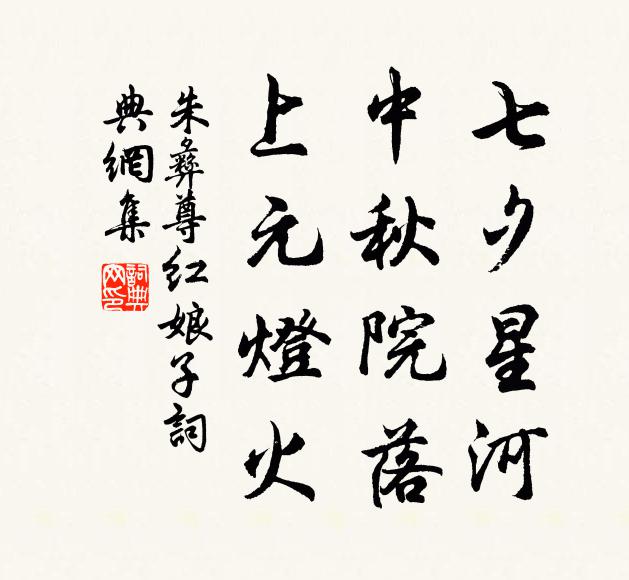 七夕星河
中秋院落
上元燈火
朱彝尊紅娘子詞
典網集
詞典
网印